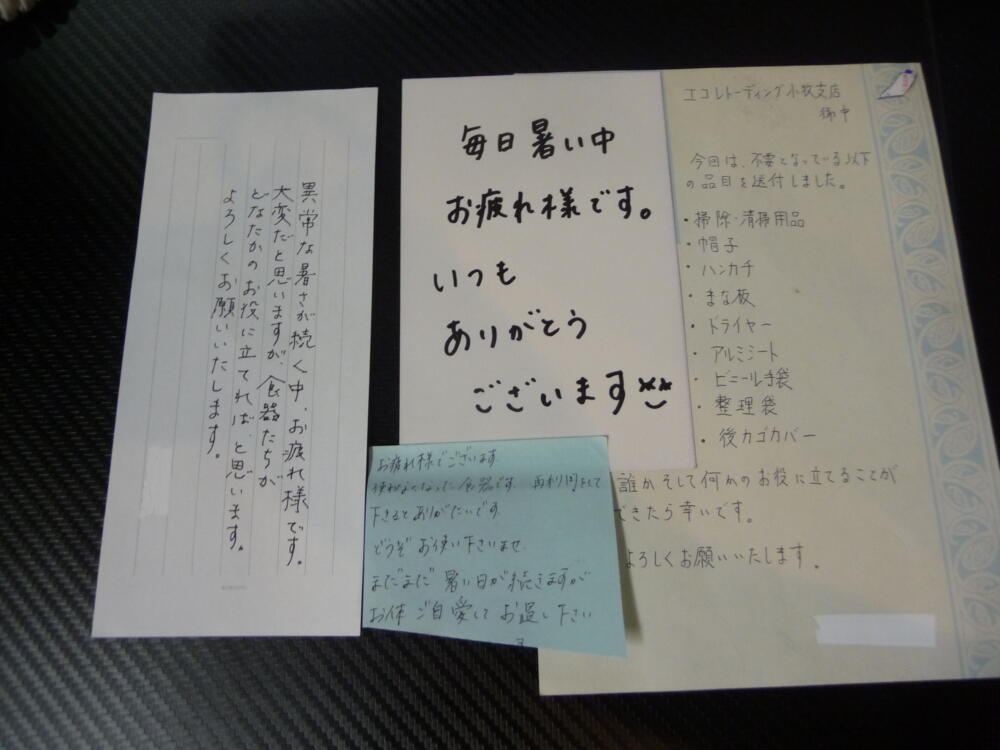 異常な暑さが続く中、お疲れ様です。
大変だと思いますが、食器たちが
どなたかのお役に立てれば、と思います。
よろしくお願いいたします。
毎日暑い中
お疲れ様です。
いつも
ありがとう
ございます
お疲れ様でございます。
使わなくなった食器です。再利用をして
下さるとありがたいです。
どうぞお使い下さいませ。
まだまだ暑い日が続きますが
お体ご自愛してお過し下さい
エコトレーディング小牧支店
御中
今回は、不要となっている以下
の品目を送付しました。
・掃除・清掃用品
・帽子
・ハンカチ
・まな板
・ドライヤー
・アルミシート
・ビニール手袋
・整理袋
・後カゴカバー
誰かそして何かのお役に立てることが
できたら幸いです。
よろしくお願いいたします。